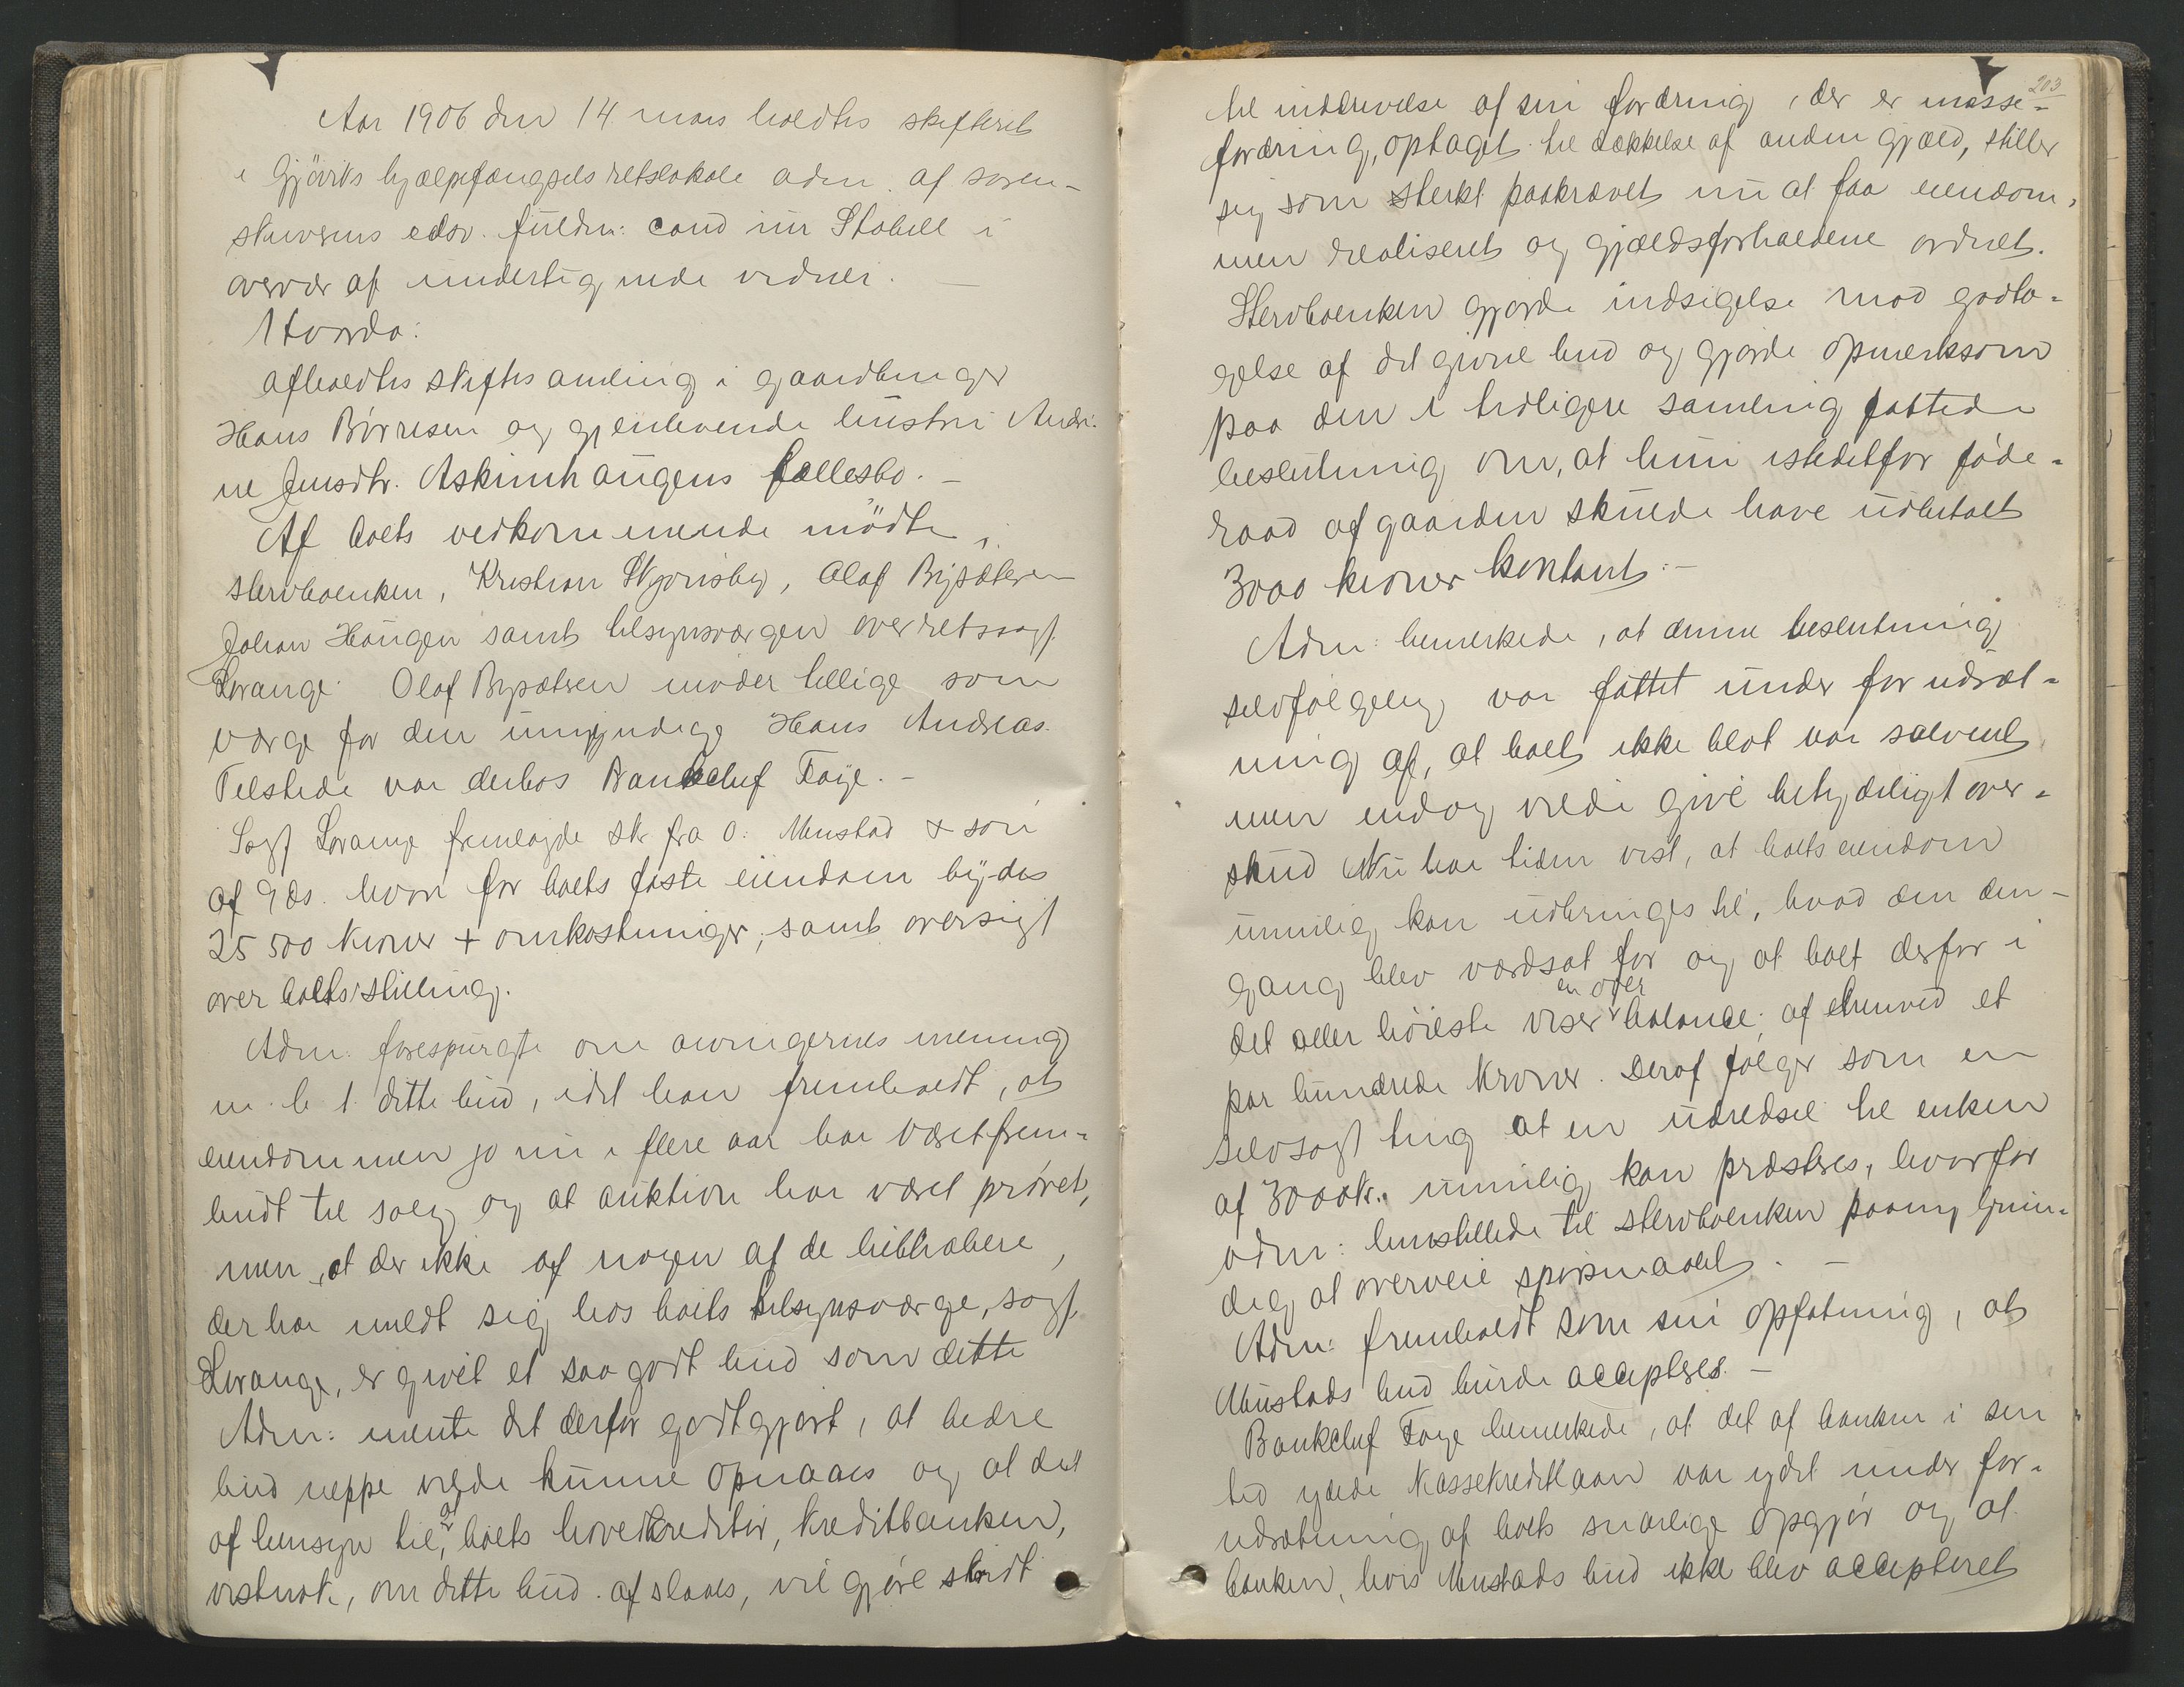 Aar 1906 den 14 mars holdtes skifteret
i Gjøviks hjælpefængsels retslokale adm. af soren-
skriverens edsv. fuldm: cand jur Stabell i
overvær af undertegnede vidner. —
Hvorda:
afholdtes skiftesamling i gaardbruger
Hans Børresen og gjenlevende hustru Andri-
ne Jensdtr. Askimhaugens fællesbo. —
Af boets vedkommende mødte
stervboenken, Kristian Skjønsby, Olaf Bysætren
Johan Haugen samt tilsynsværgen overretssagf.
Lorange. Olaf Bysætren møder tillige som
værge for den umyndige Hans Andreas.
Tilstede var derhos Bankchef Faye. —
Sagf Lorange fremlagde skr fra O. Mustad & søn
af 9 ds. hvori for boets faste eiendom bydes
25 500 kroner + omkostninger, samt oversigt
over boets stilling.
Adm. forespurgte om arvingernes mening
m. h. t. dette bud, idet han fremholdt, at
eiendommen jo nu i flere aar har været frem-
budt til salg og at auktion har været prøvet,
men, at der ikke af nogen af de liebhabere,
der har meldt sig hos boets tilsynsværge, sagf.
Lorange, er givet et saa godt bud som dette
Adm: mente det derfor godtgjort, at bedre
bud neppe vilde kunne opnaaes og at det
af hensyn til, at boets hovedkreditor, kreditbanken,
vistnok, om dette bud afslaaes, vil gjøre skridt
203
til inddrivelse af sin fordring, der er masse-
fordring, optaget til dækkelse af anden gjæld, stiller
sig som sterkt paakrævet nu at faa eiendom-
men realiseret og gjældsforholdene ordnet.
Stervboenken gjorde indsigelse mod godta-
gelse af det givne bud og gjorde opmerksom
paa den i tidligere samling fattede
beslutning om, at hun istedetfor føde-
raad af gaarden skulde have udbetalt
3000 kroner kontant. —
Adm: bemerkede, at denne beslutning
selvfølgelig var fattet under forudsæt-
ning af, at boet ikke blot var solvent
men endog vilde give betydeligt over-
skud Nu har tiden vist, at boets eiendom
umulig kan udbringes til, hvad den den-
gang blev værdsat for og at boet derfor i
det aller høieste viser en over balance af henved et
par hundrede kroner. Deraf følger som en
selvsagt ting at en udredsel til enken
af 3000 kr. umulig kan præsteres, hvorfor
adm: henstillede til stervboenken paany grun-
dig at overveie spørsmaalet. —
Adm: fremholdt som sin opfatning, at
Mustads bud burde accepteres. —
Bankchef Faye bemerkede, at det af banken i sin
tid ydede kassekreditlaan var ydet under for-
udsætning af boets snarlige opgjør og at
banken, hvis Mustads bud ikke blev accepteret